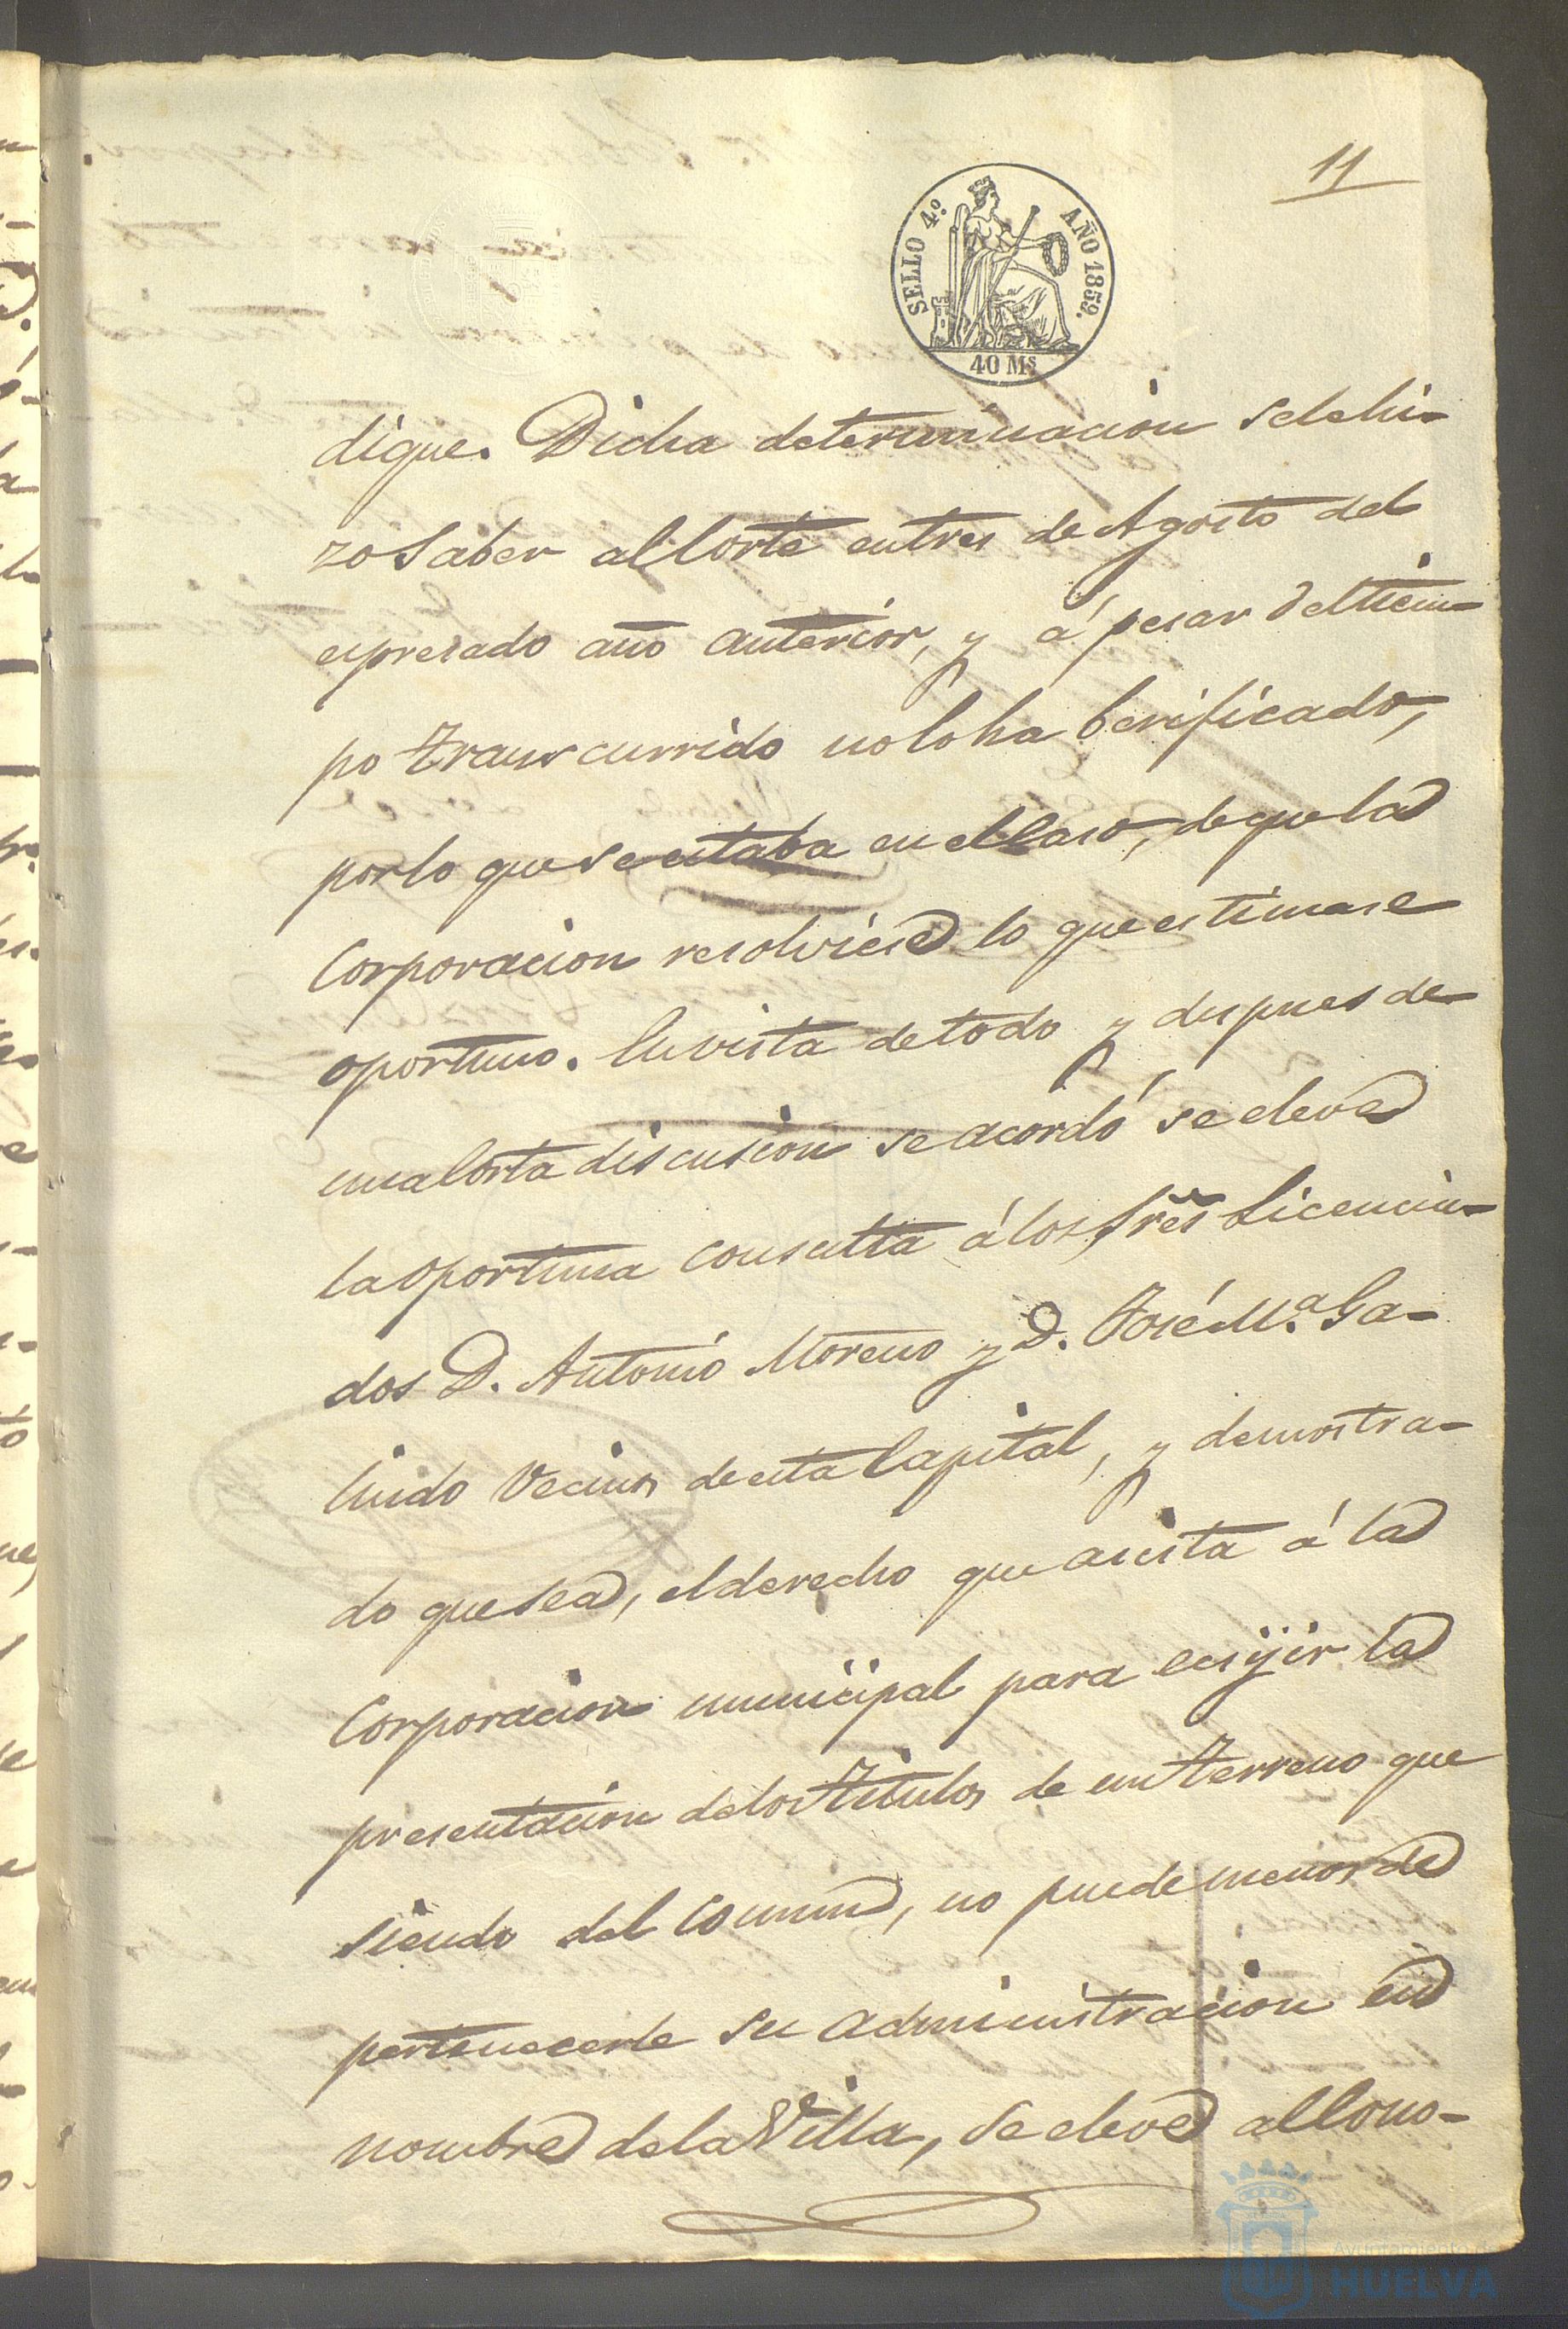 11
SELLO 4º AÑO 1859.
40 Ms
dique. Dicha determinacion sele hi-
zo Saber al Corte en tres de Agosto del
espresado año anterior, y á pesar del tiem-
po transcurrido no lo ha berificado,
por lo que se estaba en el caso, de que la
Corporacion resolviese lo que estimase
oportuno. En vista de todo y despues de
una Corta discusion se acordó se eleve
la oportuna consulta á los Sres Licencia-
dos D. Antonio Moreno y D. José Mª. Ga-
lindo Vecinos de esta Capital, y demostra-
do que sea, el derecho que asista á la
Corporacion municipal para ecsijir la
presentacion de los titulos de un terreno que
siendo del Comun, no puede menos de
pertenecerle su administracion en
nombre de la Villa, se eleve al Cono-
Ayuntamiento de
HUELVA